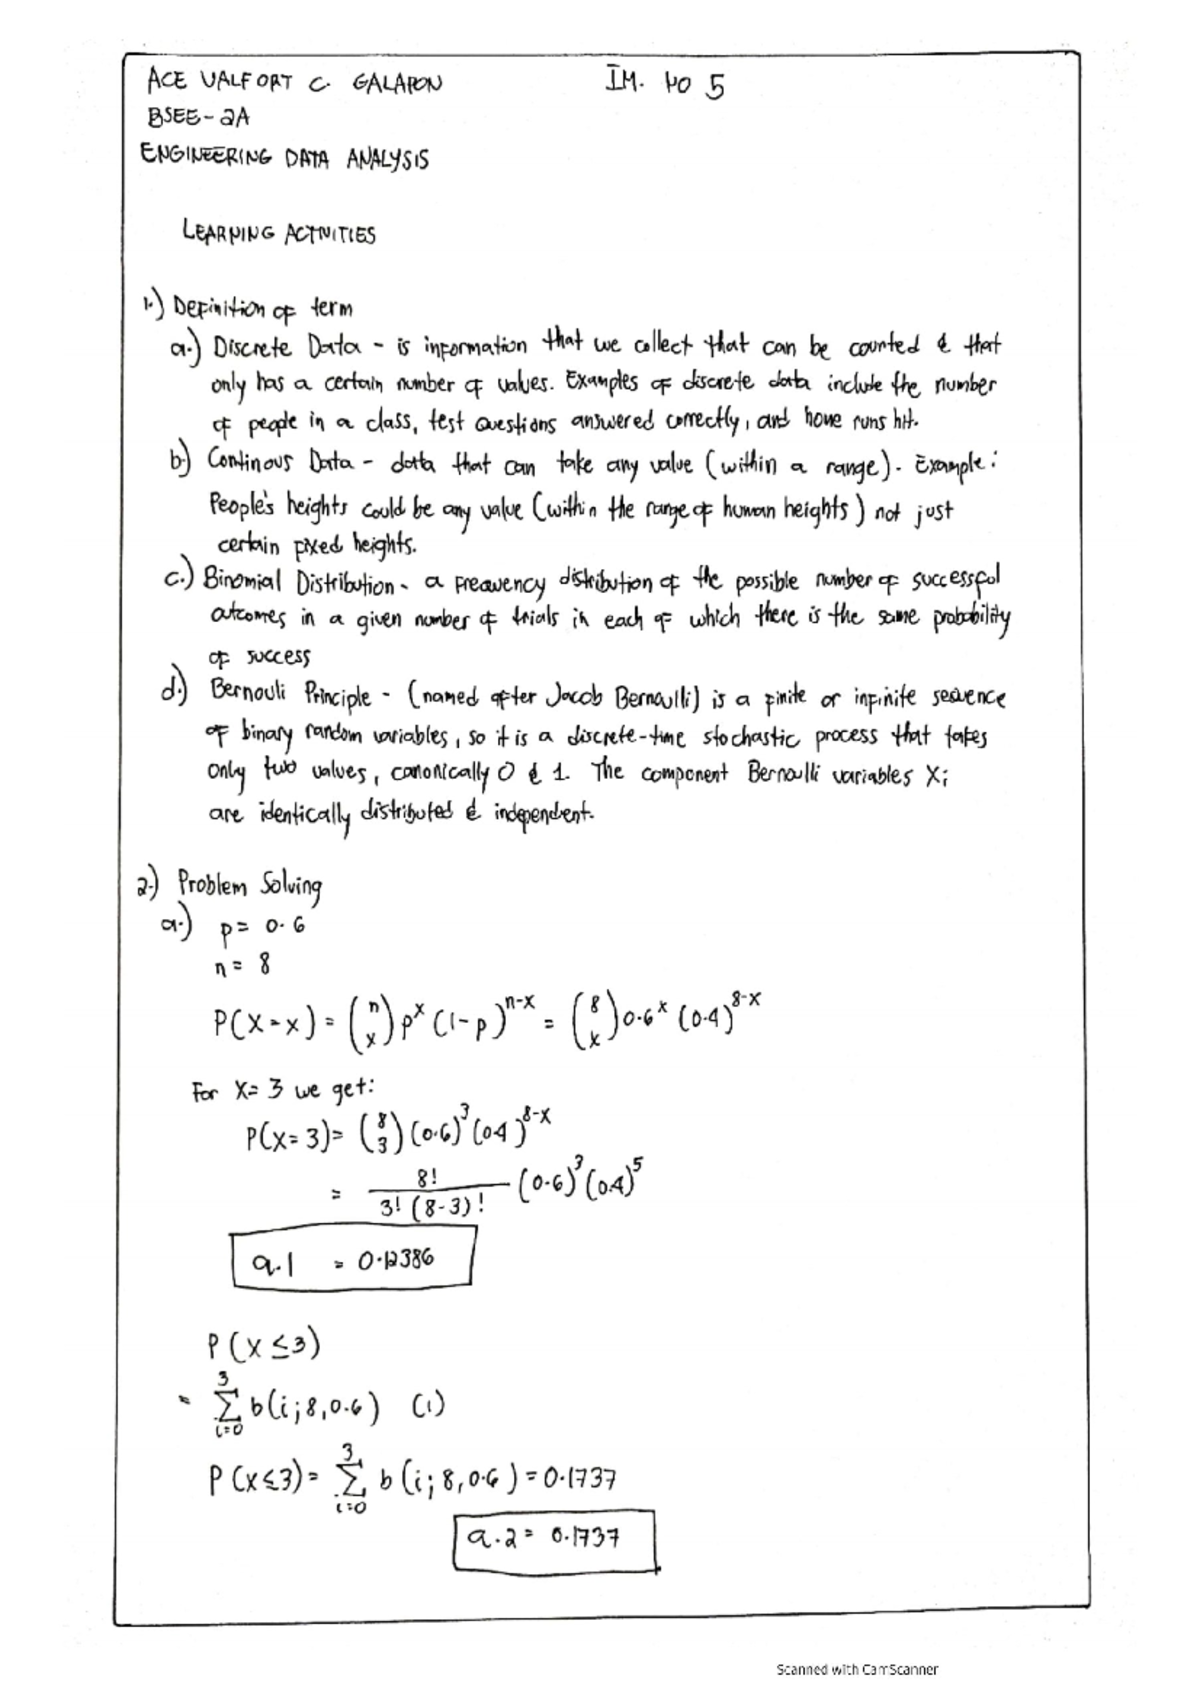 ACE VALFORT C. GALAPON IM. NO 5
BSEE-2A
ENGINEERING DATA ANALYSIS
LEARNING ACTIVITIES
1.) Definition of term
a.) Discrete Data - is information that we collect that can be counted & that
only has a certain number of values. Examples of discrete data include the number
of people in a class, test questions answered correctly, and home runs hit.
b.) Continous Data - data that can take any value (within a range). Example:
People's heights could be any value (within the range of human heights) not just
certain fixed heights.
c.) Binomial Distribution - a frequency distribution of the possible number of successful
outcomes in a given number of trials in each of which there is the same probability
of success
d.) Bernouli Principle - (named after Jacob Bernoulli) is a finite or infinite sequence
of binary random variables, so it is a discrete-time stochastic process that takes
only two values, canonically 0 & 1. The component Bernoulli variables Xi
are identically distributed & independent.
2.) Problem Solving
a.) p = 0.6
n = 8
P(X=x) = (n x) p^x (1-p)^n-x = (8 x) 0.6^x (0.4)^8-x
For X=3 we get:
P(X=3) = (8 3) (0.6)^3 (0.4)^8-x
= 8! / 3!(8-3)! (0.6)^3 (0.4)^5
a.1 = 0.12386
P(X≤3)
= 3 Σ i=0 b(i;8,0.6) (1)
P(X≤3) = 3 Σ i=0 b(i;8,0.6) = 0.1737
a.2 = 0.1737
Scanned with CamScanner